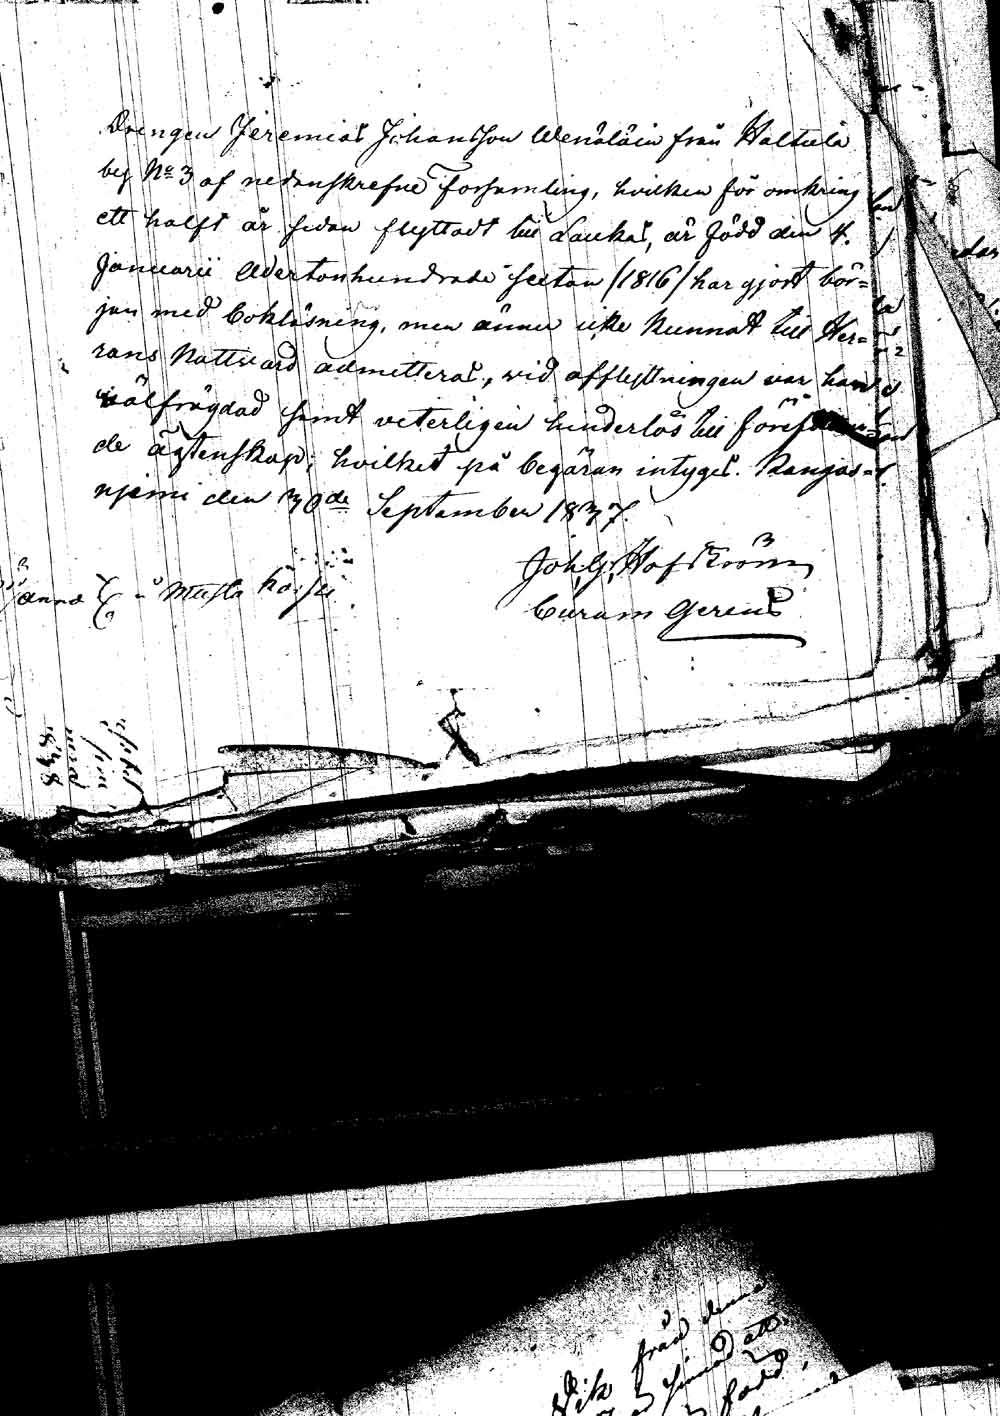 Drengen Jeremias Johansson Wenäläin från Haltula
by No 3 af nedanskrefne Församling, hvilken för omkring
ett halft år sedan flyttadt till Laukas, är född den 4.
Januarii Adertonhundrade sexton /1816/ har gjort bör=
jan med bokläsning, men ännu icke kunnat till Her=
rans Nattvard admitteras, vid afflyttningen var han
välfrägdad samt veterligen hinderlös till
de ägtenskap; hvilket på begäran intygas. Kangas=
njemi den 30de September 1837.
Joh. G. Hofström
Curam Gerens
Musta
1838
från denna
född